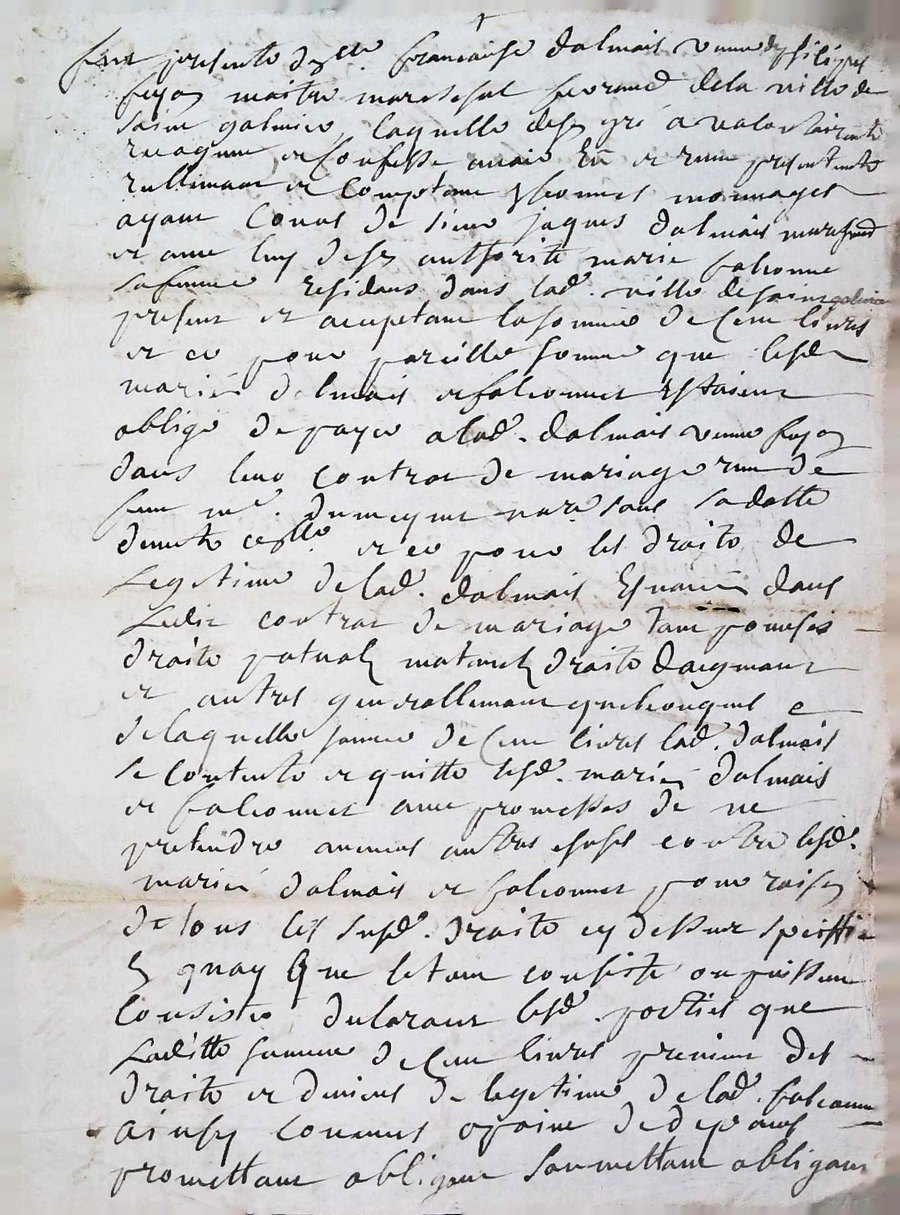 fut presente dzelle francoise dalmais veuve de philipes
fayon maitre mareschal ferrand dela ville de
saint galmier laquelle de son gré a vollontairemt
recognu et confessé avoir Eu et receu presentemt
reellement et comptant En bonnes monnoyes
ayant cours de sieur jaques dalmais marchand
et avec luy de son authorité marie falconnet
sa femme residans dans lad. ville de saint galmier
present et aceptant la somme de Cent livres
et ce pour pareille somme que lesd
mariés dalmais et falconnet Estoient
obligé de payer a lad. dalmais veuve fayon
dans leur contrat de mariage receu de
feu me. notaire sans sa datte
et ce pour les droits de
Legitime de lad. dalmais Esnoncés dans
Ledit contrat de mariage tant pour ses
droits paternels maternels droits daugmant
et autres generallement quelconques
de laquelle somme de Cent livres lad. dalmais
se contente et quitte lesd. mariés dalmais
et falconnet avec promesses de ne
pretendre aucunes autres choses contre lesd.
mariés dalmais et falconnet pour raison
de tous les susd. droits cy dessus speciffié
En quoy que le tout consiste ou puissent
Consister declarant lesd. parties que
Laditte somme de Cent livres provient des
droits et deniers de legitime de lad. falconnet
ainsy convenus a paine de depans
promettant obligeant soumettant obligeant